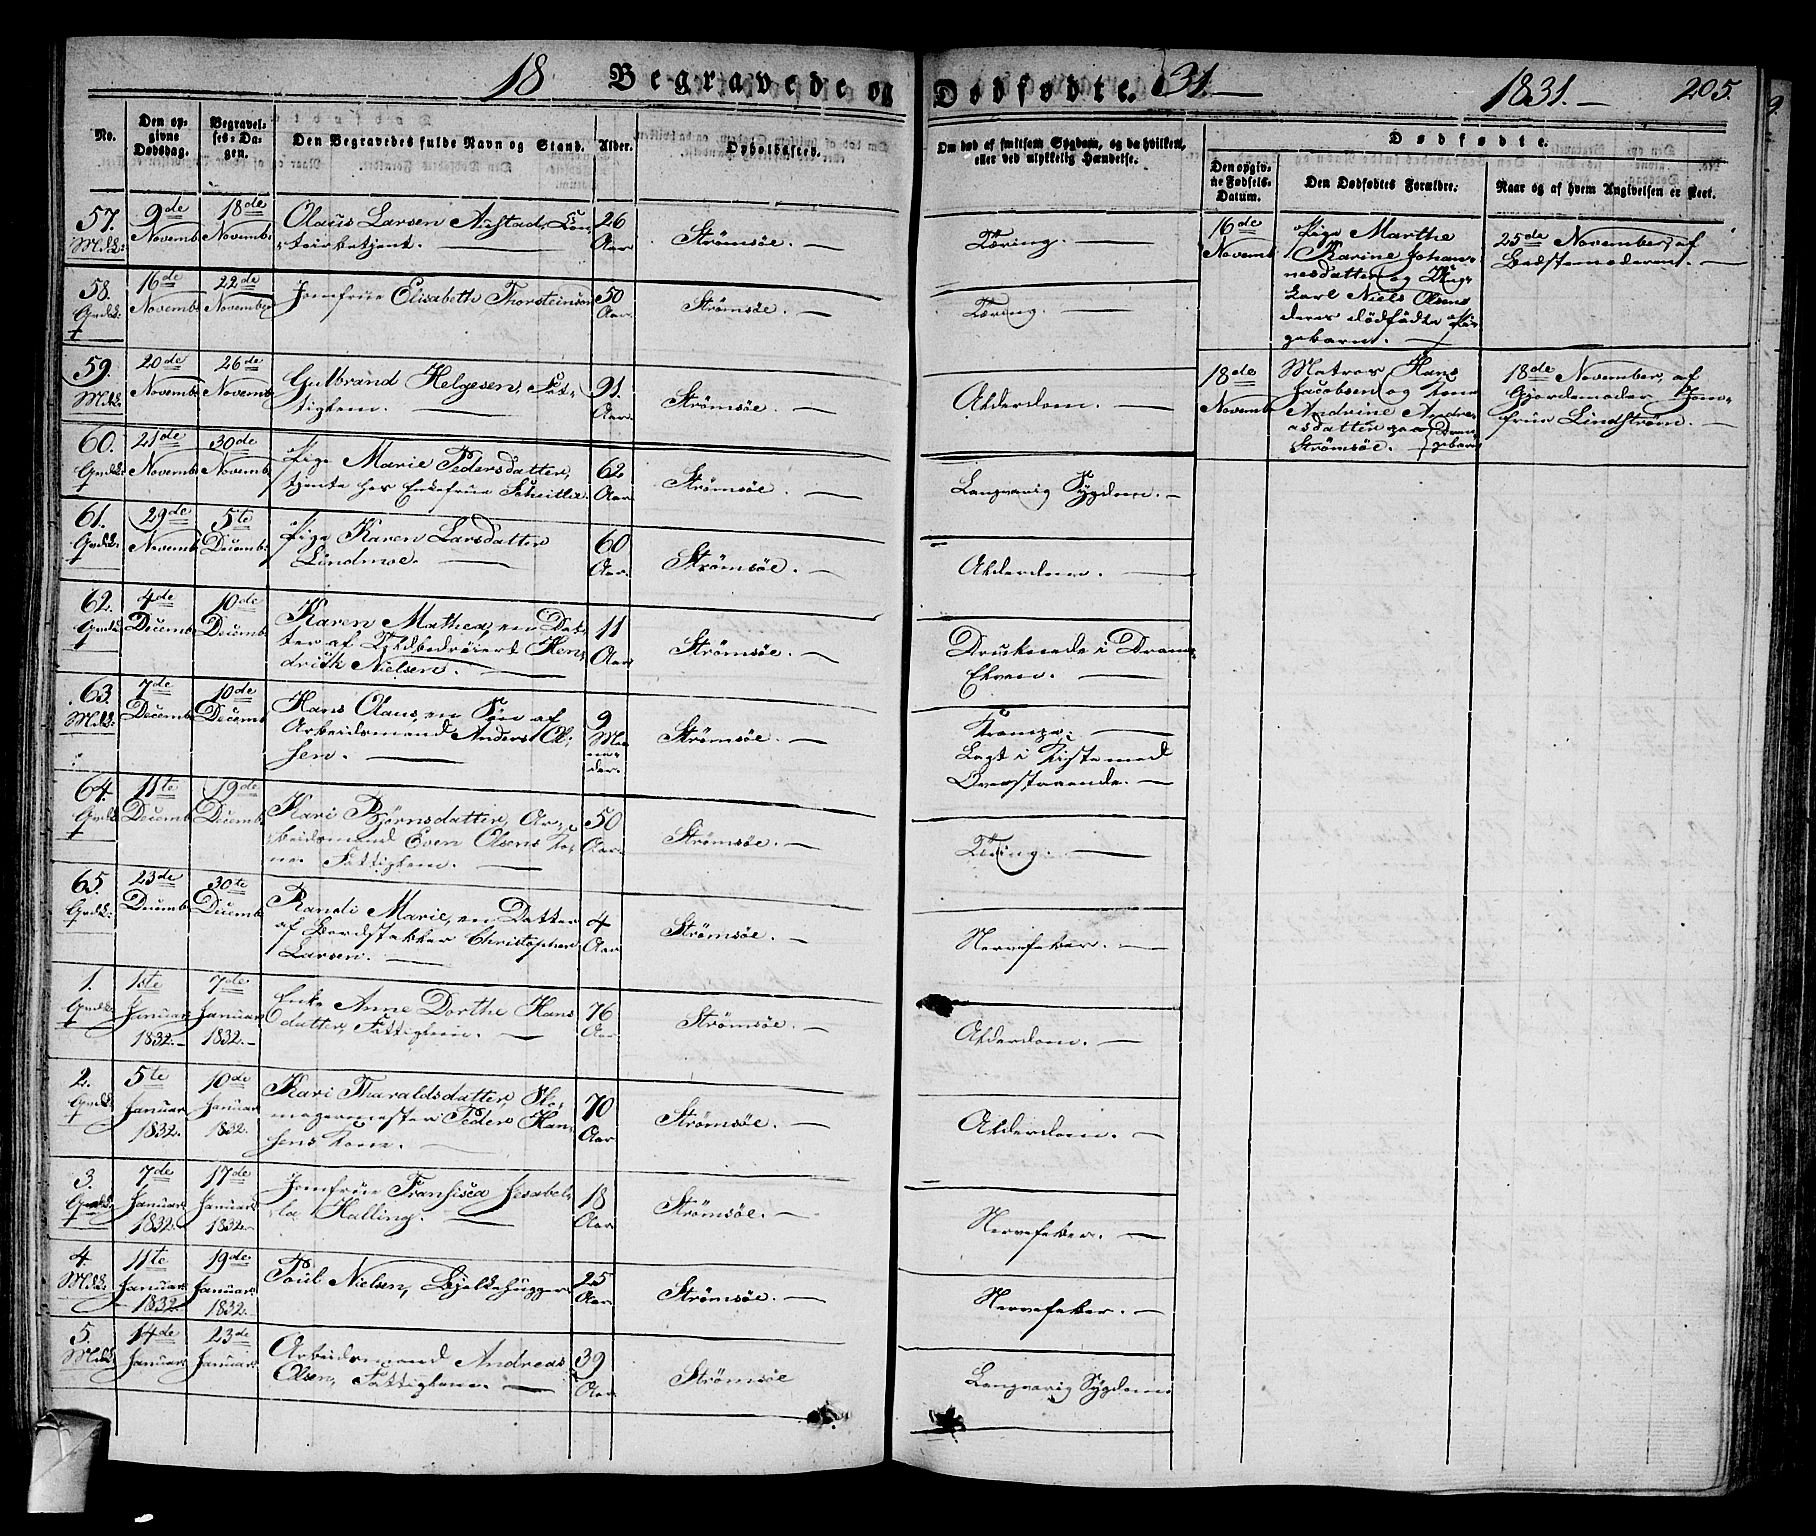 18 Begravede og Dødfødte. 31.—
1831.— 205.
No.
Den op-
givne
Dødsdag.
Begravel-
ses-Da-
gen.
Den Begravedes fulde Navn og Stand.
Alder.
Opholdssted.
Om død af smitsom Sygdom, og da hvilken,
eller ved ulykkelig Hændelse.
Dødfødte.
Den opgiv-
ne Fødsels-
Datum.
Den Dødfødtes Forældre.
Naar og af hvem Angivelsen er skeet.
57. 9de 18de Olaus Larsen Austad, Con- 26
Novemb. Novemb. toirbetjent. — Aar. Strømsøe. — Tæring. —
58. 16de 22de Jomfrue Elisabeth Thorsteinson 50
Novemb. November Aar. Strømsøe. — Tæring. —
59. 20de 26de Gulbrand Helgesen, Fat- 91.
Novemb. Novemb. tiglem. — Aar. Strømsøe. — Alderdom. —
60. 21de 30de Pige Marie Pedersdatter, 62
Novemb. Novemb. tjente hos Enkefrue Aar. Strømsøe. — Langvarig Sygdom. —
61. 29de 5te Pige Karen Larsdatter 60
Novemb. Decemb. Lindmoe. — Aar. Strømsøe. — Alderdom. —
62. 4de 10de Karen Mathea, en Dat- 11
Decemb. Decemb. ter af Hen- Aar. Strømsøe. — Druknede i Drams-
drich Nielsen. — Elven. —
63. 7de 10de Hans Olaus, en Søn af 9
Decemb. Decemb. Arbeidsmand Anders Ol- Maa- Strømsøe. — Krampe. —
sen. — ne- Lagt i Kiste med
der. Ovenstaaende. —
64. 11te 19de Kari Bjørnsdatter, Ar- 50
Decemb. Decemb. beidsmand Even Olsens Ko- Aar. Strømsøe. — Tæring. —
ne Fattiglem. —
65. 23de 30te Randi Marie, en Datter 4
Decemb. Decemb. af Bordstabler Christopher Aar. Strømsøe. — Nervefeber. —
Larsen. —
1. 1ste 7de Enke Anne Dorthe Hans 76
Januar Januar datter, Fattiglem. — Aar. Strømsøe. — Alderdom. —
1832.— 1832.—
2. 5te 10de Kari Tharaldsdatter, Sko- 70
Januar Januar magermester Peder Han- Aar. Strømsøe. — Alderdom. —
1832. 1832. sens Kone. —
3. 7de 17de Jomfrue Fransisca Jesabel- 18
Januar Januar la Kalling. — Aar. Strømsøe. — Nervefeber. —
1832. 1832.—
4. 11te 19de Poul Nielsen, Bjelkehugger 25
Januar Januar Aar. Strømsøe. — Nervefeber. —
1832. 1832.
5. 14de 23de Arbeidsmand Andreas 39
Januar Januar Olsen, Fattiglem. — Aar. Strømsøe Langvarig Sygdom
16de Pige Marthe 25de November, af
Novemb. Karine Johan- Bedstemoderen. —
nesdatter og Ung-
karl Niels Olsens
deres dødfødte Pi-
gebarn. —
18de Matros Hans 18de November, af
Novemb. Jacobsen og Kone Gjordemoder Jom-
Andrine Andre- frue Lindstrøm. —
asdatter paa Dren-
Strømsøe. — gebarn